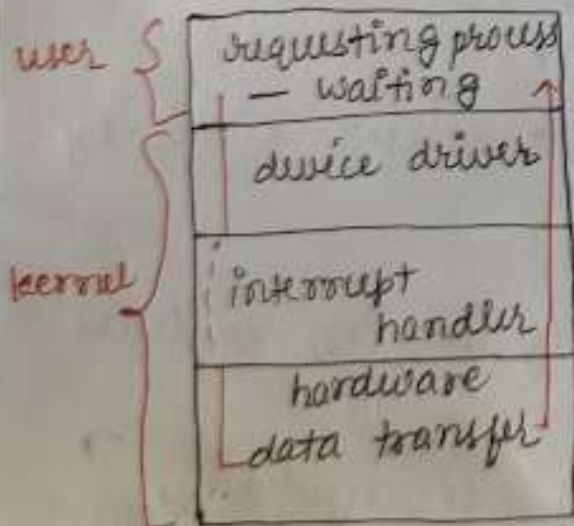 user
requesting process
— waiting
device driver
kernel
interrupt
handler
hardware
data transfer